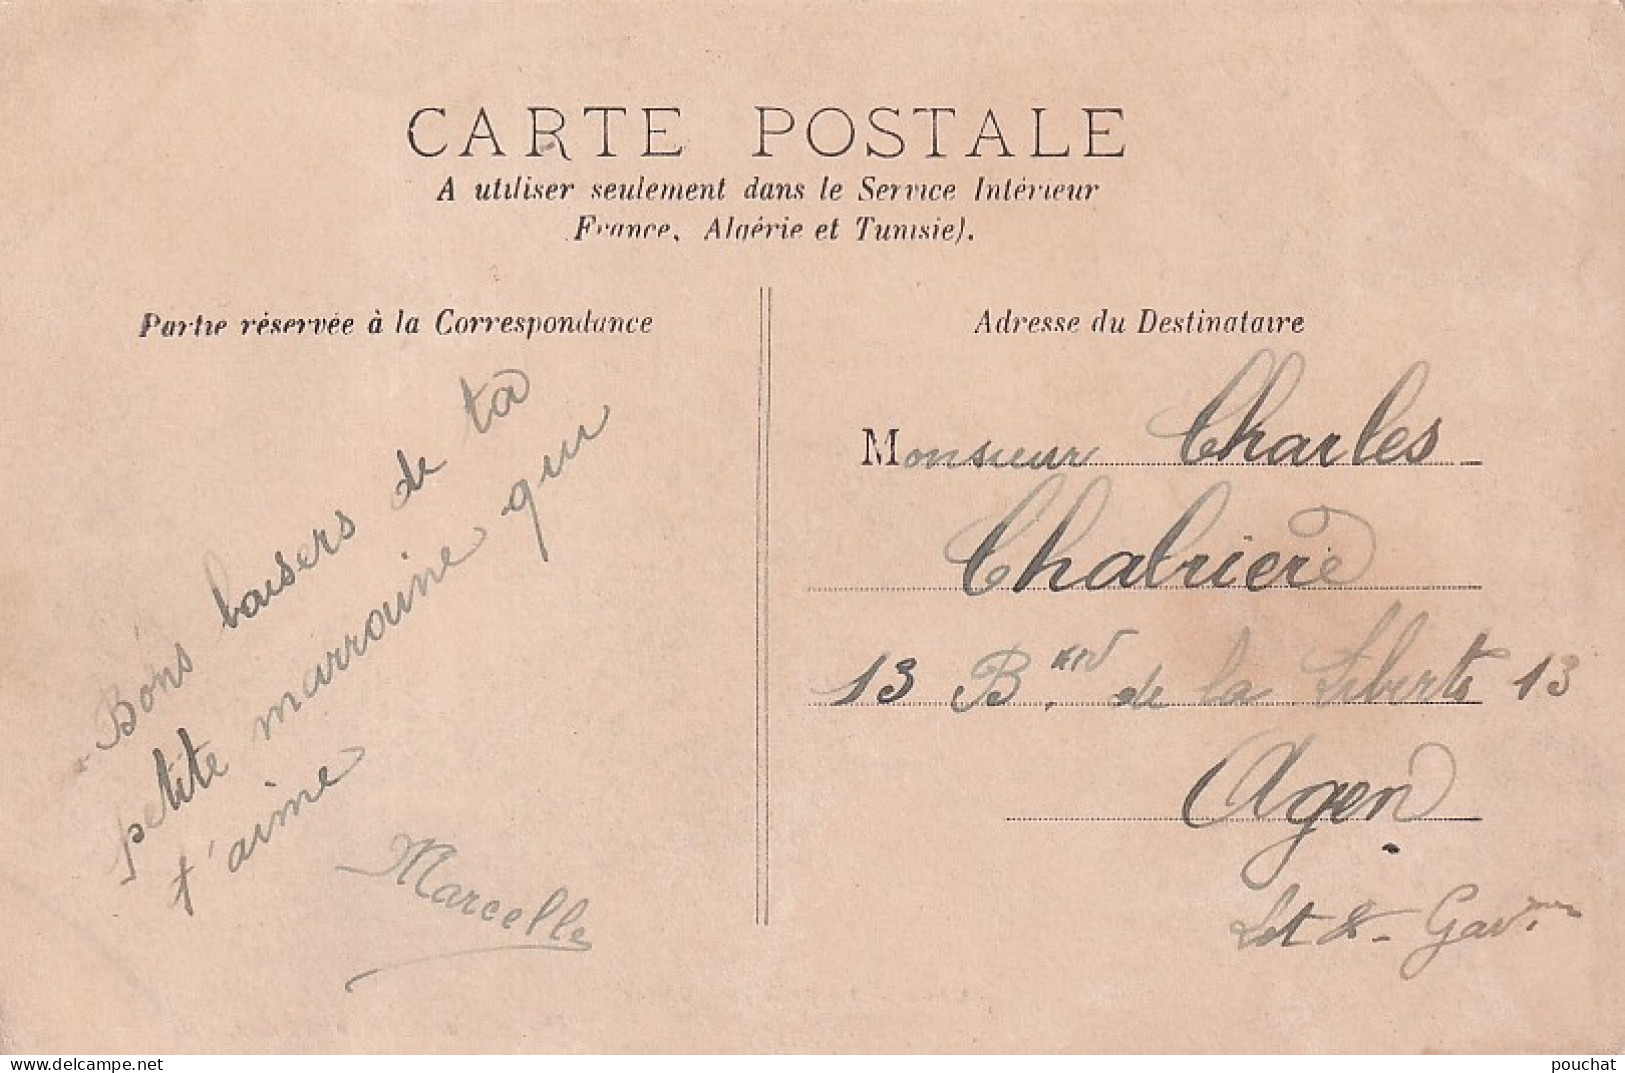 CARTE POSTALE
A utiliser seulement dans le Service Intérieur
France, Algérie et Tunisie).
Partie réservée à la Correspondance
Bons baisers de ta
petite marraine qui
t'aime
Marcelle
Adresse du Destinataire
Monsieur Charles
Chalrière
13 B.ard de la Liberté 13
Agen
Lot &- Gar.
www.delcampe.net
pouchat